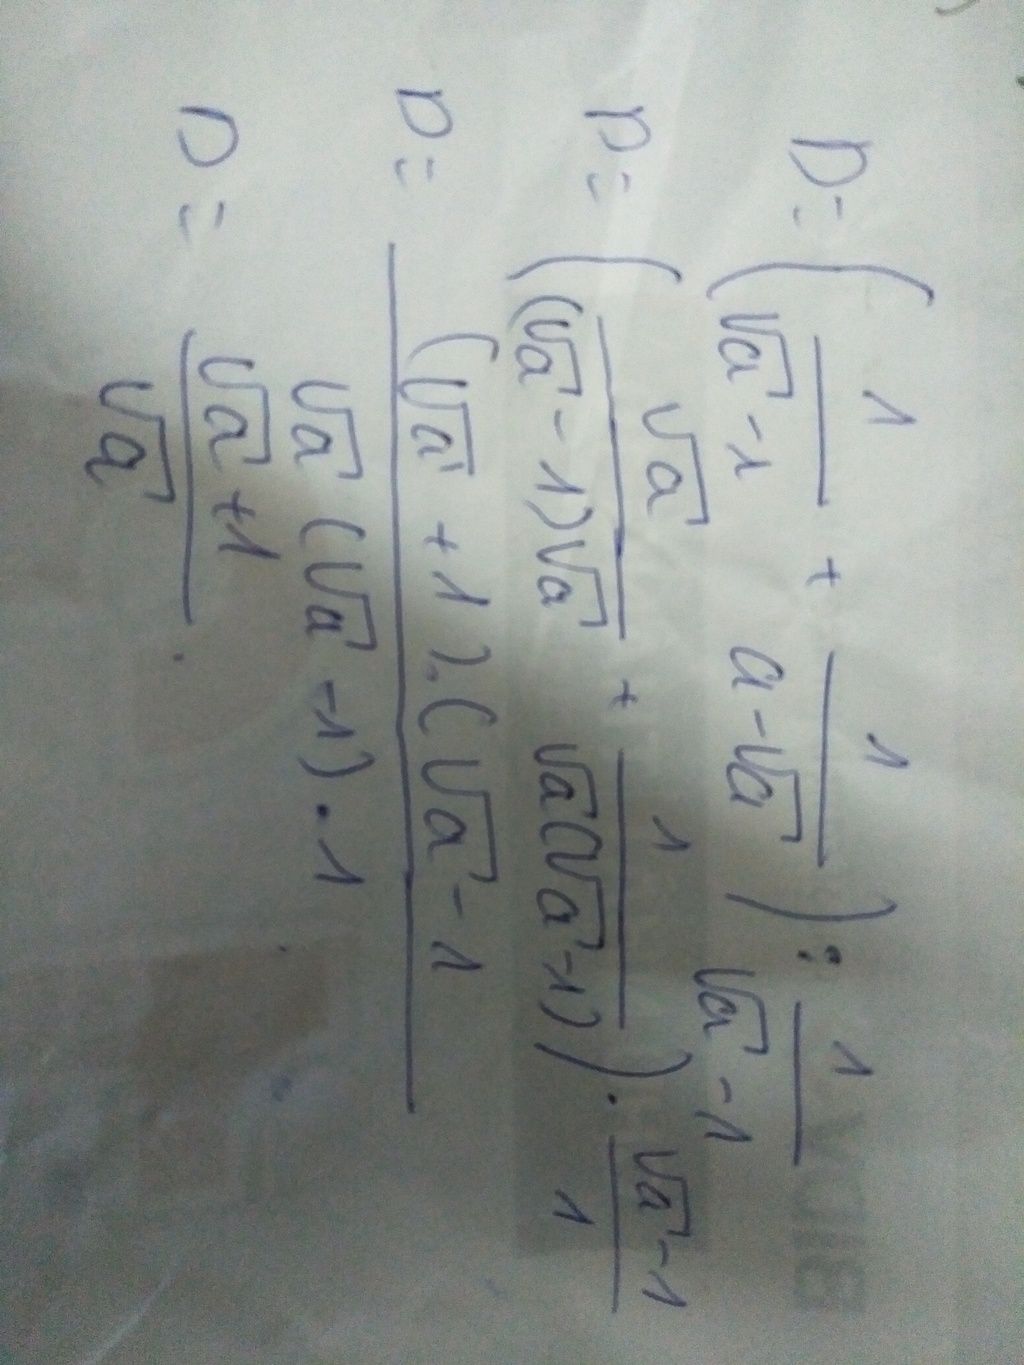 D = ( 1/(√a - 1) + 1/(a - √a) ) : 1/(√a - 1)
D = ( √a/((√a - 1)√a) + 1/(√a(√a - 1)) ) . (√a - 1)/1
D = (√a + 1).(√a - 1 / √a (√a - 1) . 1
D = (√a + 1)/√a .